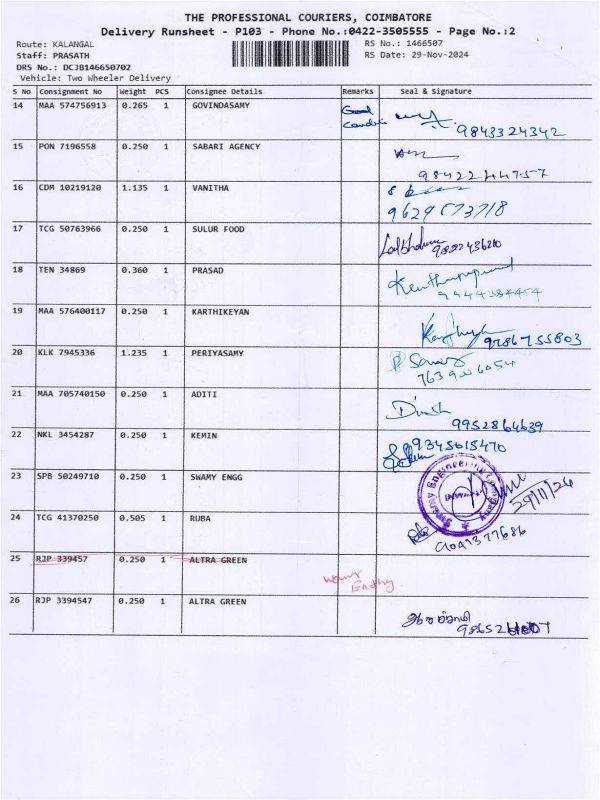 THE PROFESSIONAL COURIERS, COIMBATORE
Delivery Runsheet - P103 - Phone No.:0422-3505555 - Page No.:2
Route: KALANGAL RS No.: 1466507
Staff: PRASATH RS Date: 29-Nov-2024
DRS No.: DCJB146650702
Vehicle: Two Wheeler Delivery
S No Consignment No Weight PCS Consignee Details Remarks Seal & Signature
14 MAA 574756913 0.265 1 GOVINDASAMY
9843324342
15 PON 7196558 0.250 1 SABARI AGENCY
9842244757
16 CDM 10219120 1.135 1 VANITHA
9629673718
17 TCG 50763966 0.250 1 SULUR FOOD
18 TEN 34869 0.360 1 PRASAD
9944384454
19 MAA 576400117 0.250 1 KARTHIKEYAN
9786755803
20 KLK 7945336 1.235 1 PERIYASAMY
21 MAA 705740150 0.250 1 ADITI
Dinesh
9952864639
22 NKL 3454287 0.250 1 KEMIN
9345615470
23 SPB 50249710 0.250 1 SWAMY ENGG
Swamy Engineering Company
29/11/24
24 TCG 41370250 0.505 1 RUBA
9041377686
25 RJP 339457 0.250 1 ALTRA GREEN
Entry
26 RJP 3394547 0.250 1 ALTRA GREEN